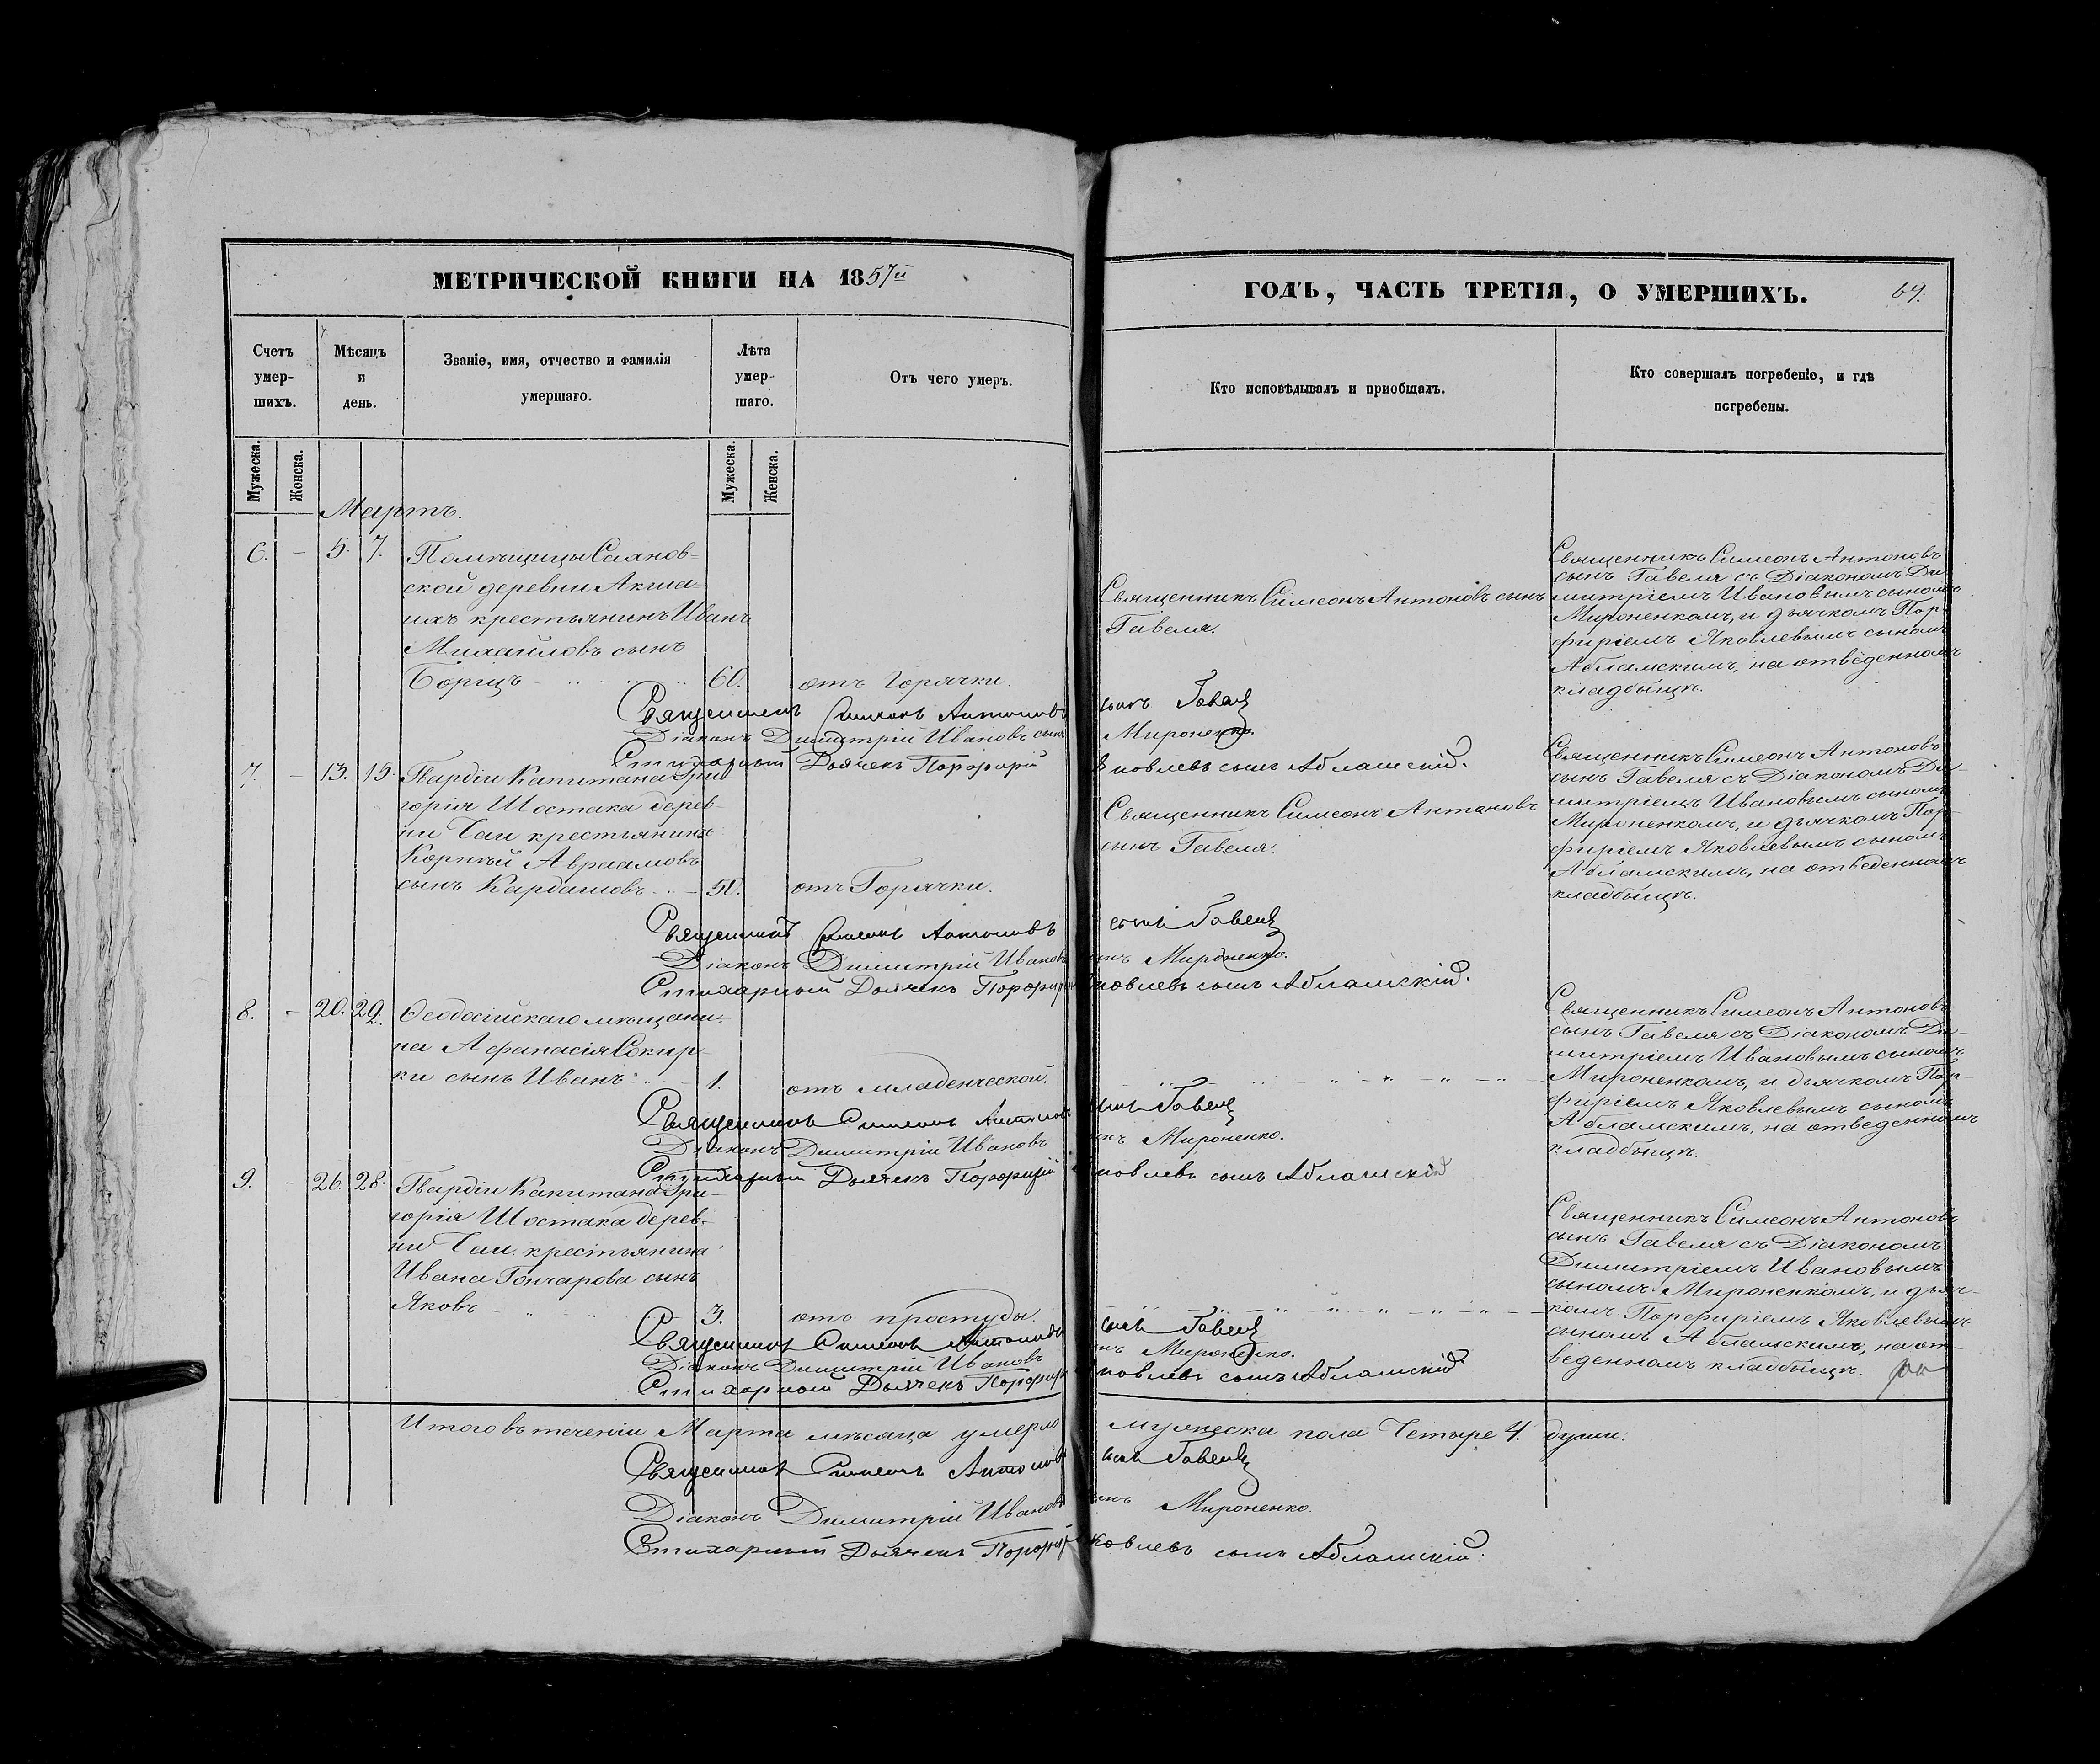 МЕТРИЧЕСКОЙ КНИГИ НА 1857й
Счетъ умер-шихъ.
Мѣсяцъ и день.
Званіе, имя, отчество и фамилія умершаго.
Лѣта умер-шаго.
Отъ чего умеръ.
Мужеска. Женска.
Мужеска. Женска.
Мартъ.
6. – 5. 7. Помѣщицы Саянов-
ской деревни Акма-
нах крестьянинъ Иванъ
Михайловъ сынъ
Борщъ 60. отъ горячки.
Священникъ Симеонъ Антоновъ
Діаконъ Димитрій Ивановъ сынъ
Стихарный Дьячекъ Порфирій
7. – 13. 15. Гвардіи Капитана Гри-
горія Шостака дерев-
ни Чаи крестьянинъ
Корнѣй Авраамовъ
сынъ Кардашовъ 50. отъ Горячки.
Священникъ Симеонъ Антоновъ
Діаконъ Димитрій Ивановъ
Стихарный Дьячекъ Порфирій
8. – 20. 22. Ѳеодосійскаго мѣщани-
на Афанасія Сокир-
ки сынъ Иванъ 1. отъ младенческой.
Священникъ Симеонъ Антоновъ
Діаконъ Димитрій Ивановъ
Стихарный Дьячекъ Порфирій
9. – 26. 28. Гвардіи Капитана Гри-
горія Шостака дерев-
ни Чаи крестьянина
Ивана Гончарова сынъ
Яковъ 3. отъ простуды.
Священникъ Симеонъ Антоновъ
Діаконъ Димитрій Ивановъ
Стихарный Дьячекъ Порфирій
Итого въ теченіи Марта мѣсяца умерло
Священникъ Симеонъ Антоновъ
Діаконъ Димитрій Ивановъ
Стихарный Дьячекъ Порфирій
ГОДЪ, ЧАСТЬ ТРЕТІЯ, О УМЕРШИХЪ. 69.
Кто исповѣдывалъ и приобщалъ.
Кто совершалъ погребеніе, и гдѣ погребены.
Священникъ Симеонъ Антоновъ сынъ
Гавеля.
Священникъ Симеонъ Антоновъ
сынъ Гавеля съ Діакономъ Ди-
митріемъ Ивановымъ сыномъ
Мироненкомъ, и дьячкомъ Пор-
фиріемъ Яковлевымъ сыномъ
Абламскимъ, на отведенномъ
кладбищѣ.
сынъ Гавеля
Мироненко.
Яковлевъ сынъ Абламскій.
Священникъ Симеонъ Антоновъ
сынъ Гавеля.
Священникъ Симеонъ Антоновъ
сынъ Гавеля съ Діакономъ Ди-
митріемъ Ивановымъ сыномъ
Мироненкомъ, и дьячкомъ Пор-
фиріемъ Яковлевымъ сыномъ
Абламскимъ, на отведенномъ
кладбищѣ.
сынъ Гавеля
сынъ Мироненко.
Яковлевъ сынъ Абламскій.
Священникъ Симеонъ Антоновъ
сынъ Гавеля съ Діакономъ Ди-
митріемъ Ивановымъ сыномъ
Мироненкомъ, и дьячкомъ Пор-
фиріемъ Яковлевымъ сыномъ
Абламскимъ, на отведенномъ
кладбищѣ.
сынъ Гавеля
сынъ Мироненко.
Яковлевъ сынъ Абламскій
Священникъ Симеонъ Антоновъ
сынъ Гавеля съ Діакономъ
Димитріемъ Ивановымъ
сыномъ Мироненкомъ, и дьяч-
комъ Порфиріемъ Яковлевымъ
сыномъ Абламскимъ, на от-
веденномъ кладбищѣ.
сынъ Гавеля
сынъ Мироненко.
Яковлевъ сынъ Абламскій
мужеска пола Четыре 4. души.
сынъ Гавеля
сынъ Мироненко.
Яковлевъ сынъ Абламскій.